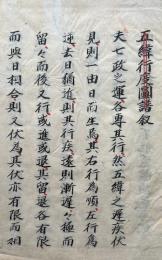 五緯行度圖譜叙
夫七政之運各專其行然五緯之遲疾伏
見則一由日而生焉其右行為順左行為
逆去日猶近則其行疾遠則漸遲遲極而
留留而後又行或進或退其留退各有限
而與日相合則又伏焉其伏亦有限而相